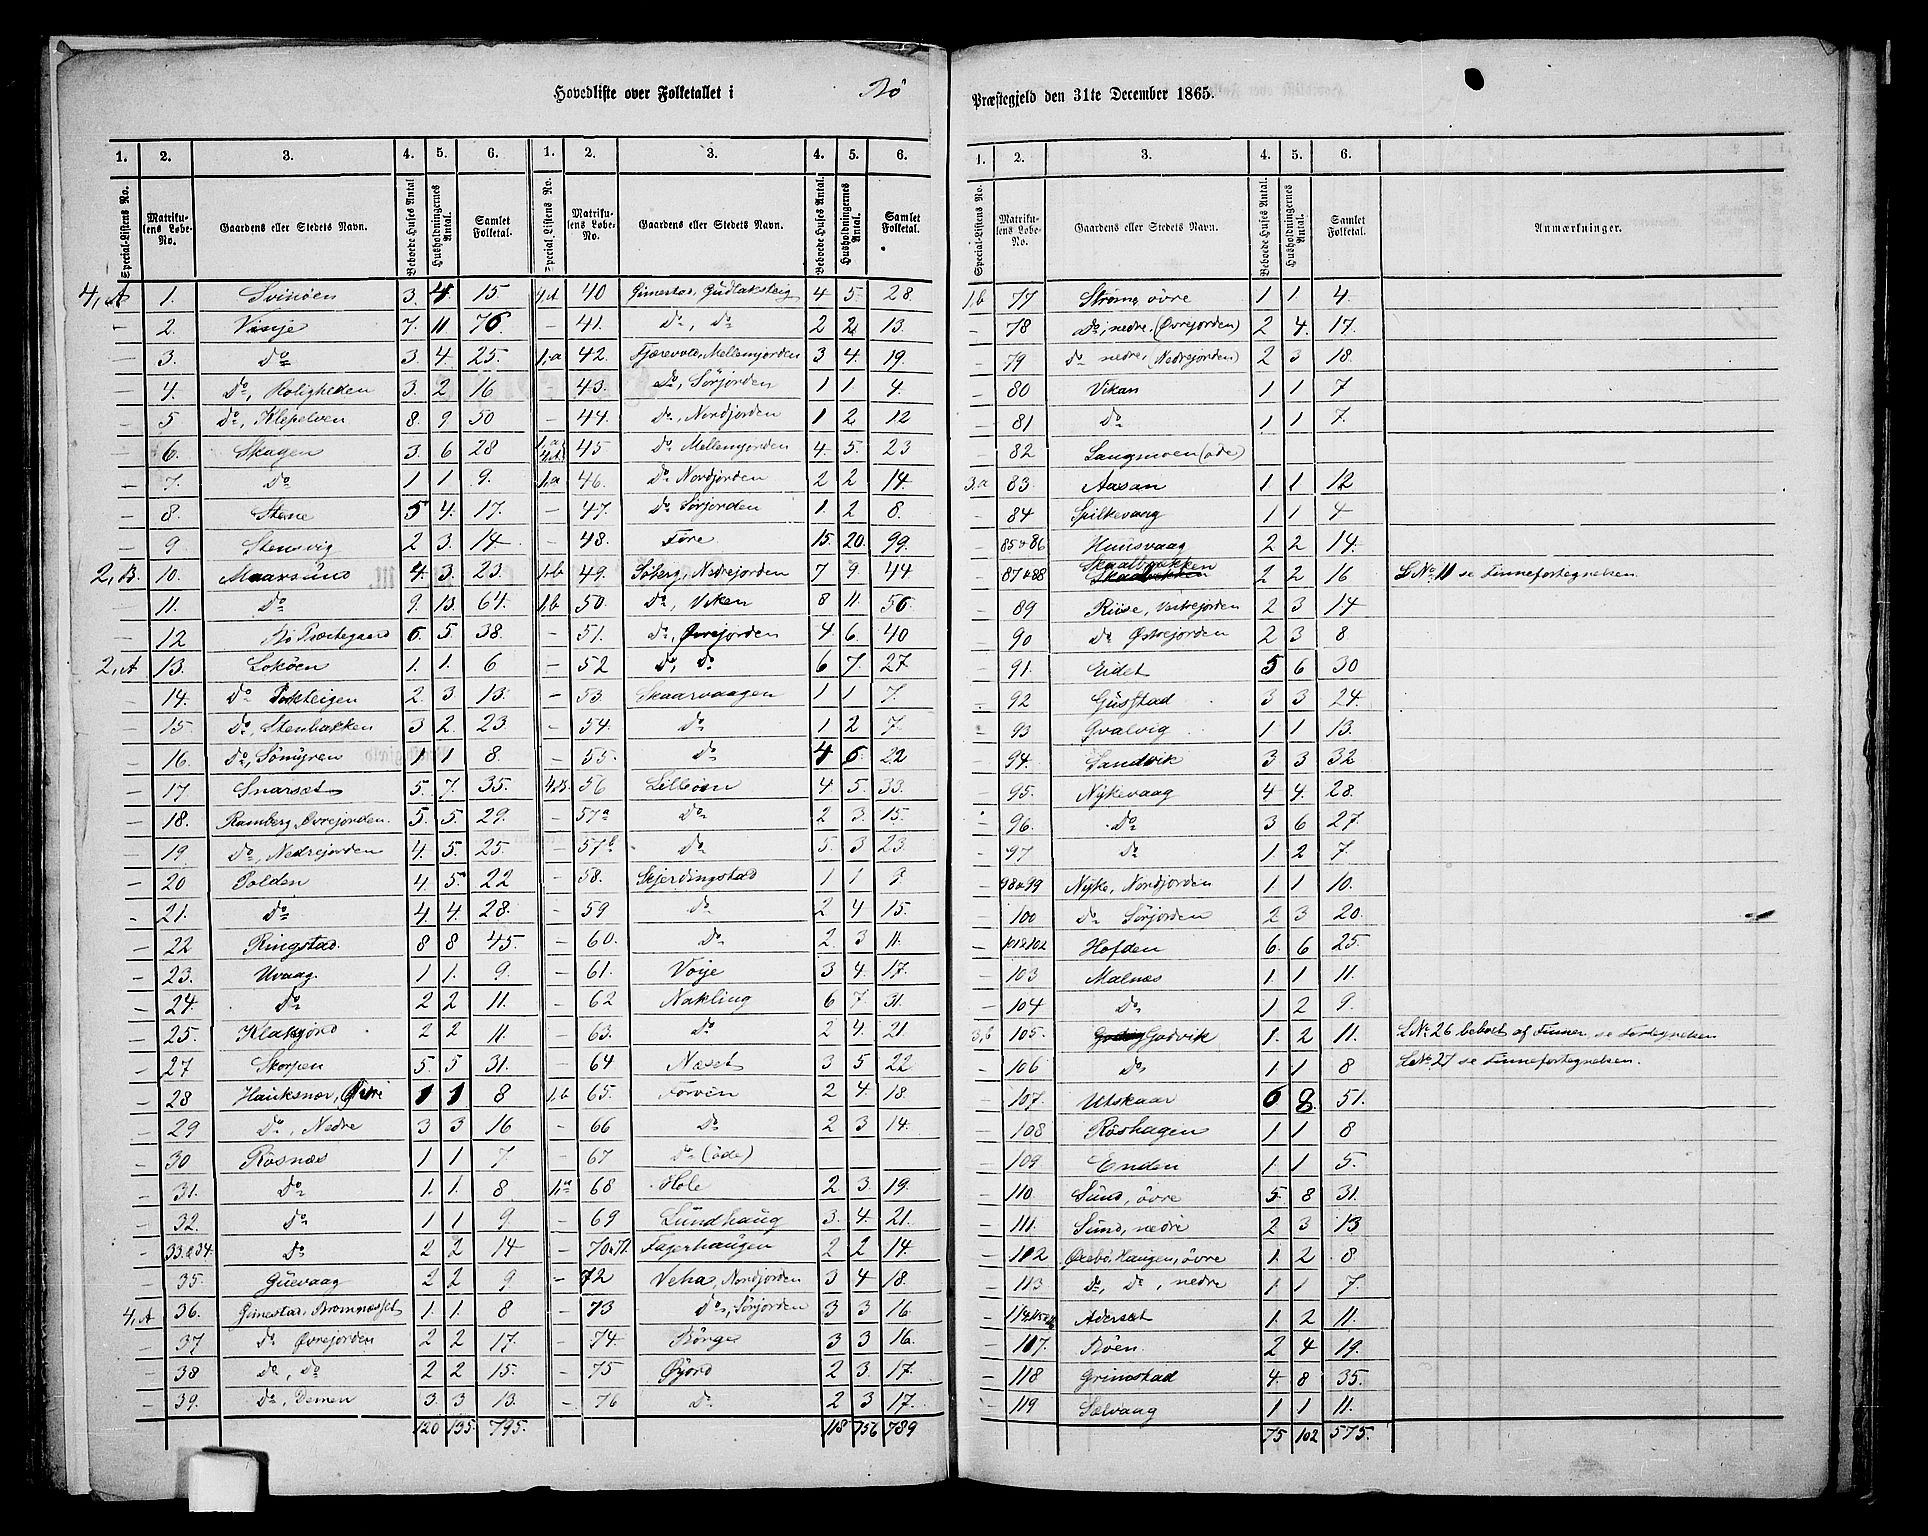 Hovedliste over Folketallet i Bö
Præstegjeld den 31te December 1865.
1. 2. 3. 4. 5. 6. 1. 2. 3. 4. 5. 6.
Special-Listens No. Matrikulens Løbe-No. Gaardens eller Stedets Navn. Beboede Huses Antal Husholdningernes Antal. Samlet Folketal. Special-Listens No. Matrikulens Løbe-No. Gaardens eller Stedets Navn. Beboede Huses Antal. Husholdningernes Antal. Samlet Folketal.
4, A 1. Svinöen 3. 4. 15. 4,A 40 Gimestad, Gudlaksteig 4 5. 28.
— 2. Vinje 7. 11 76 — 41. Do, Do 2 2 13.
— 3. Do 3. 4. 25. 1,a 42. Fjærevold, Mellemjorden 3 4. 19.
— 4. Do, Roligheden 3. 2 16 — 43. Do, Sörjorden 1 1 4.
— 5 Do, Klepelven 8. 9 50 — 44. Do, Nordjorden 1 2 12
— 6. Skagen 3. 6 28 1,a 4,A. 45 Do Mellemjorden 4. 5. 23
— 7. Do 1 1 9. 1,a 46. Do Nordjorden 2 2 14.
— 8. Stene 5 4. 17. — 47. Do Sörjorden 1. 2 8.
— 9 Stensvig 2 3. 14. — 48. Före 15. 20. 99.
2, B. 10. Maarsund 4. 3. 23. 1,b 49. Söberg, Nedrejorden 7 9 44.
— 11. Do 9. 13. 64. 1,b 50. Do, Viken 8 11. 56.
— 12 Bö Præstegaard 6. 5. 38. — 51. Do, Øvrejorden 4 6. 40
2, A 13. Loköen 1. 1. 6 — 52 Do, Do 6 7. 27
— 14. Do 2. 3 13. — 53. Skaarvaagen 1 1 7.
— 15. Do, Stenbakken 3 2. 23. — 54. Do 1 2 7.
— 16. Do, Sömyren 1 1 8. — 55. Do 4 6. 22
— 17 Snarset 5. 7. 35. 4,B. 56 Lillöen 4 5. 33.
— 18. Ramberg, Øvrejorden. 5. 5. 29. — 57a Do 2 3. 15.
— 19. Do, Nedrejorden 4. 5. 25. — 57b Do 5. 3 23.
— 20 Polden 4. 5. 22 — 58. Skjerdingstad 1 1 9.
— 21. Do 4. 4. 28. — 59 Do 2 4. 15.
— 22 Ringstad. 8 8 45. — 60. Do 2. 3 11.
— 23. Uvaag. 1 1. 9. — 61. Vöye 3 4. 17.
— 24. Do 2 2 11. — 62 Nakling 6 7. 31.
— 25. Klakjord 2 2 11. — 63. Do 2 4. 21
— 27 Skorpen 5 5 31. — 64 Næset 3 5 22
— 28 Hauknæs, Øvre 1 1 8 1,b 65. Förven 2 4. 18.
— 29 Do, Nedre 3 3 16 — 66 Do 2 3 14.
— 30 Rösnæs 1 1 7. — 67 Do (öde)
— 31. Do 1. 1. 8 1,a 68 Hole 2 3. 19.
— 32. Do 1 1 9 — 69 Lundhaug 3. 4. 21.
— 33&34. Do 2 2 14 — 70&71. Fagerhaugen 2 2 14.
— 35. Guevaag 2 2 9 — 72 Veha, Nordjorden 3 4 18.
4, A 36. Gimestad, Bromnæsset 1. 1. 8 — 73 Do, Sörjorden 3 3 16
— 37 Do Øvrejorden 2 2 17. — 74. Börge 3 3 16.
— 38 Do, Do 2 2 15. — 75 Öyjord 2 3. 17.
— 39. Do, Demen 3. 3 13. — 76 Do 2 3 17.
120 135. 795. 118 156 789
1. 2. 3. 4. 5. 6.
Special-Listens No. Matrikulens Løbe-No. Gaardens eller Stedets Navn. Beboede Huses Antal. Husholdningernes Antal. Samlet Folketal. Anmærkninger.
1,b 77 Ström, övre 1 1 4.
— 78 Do, nedre, (Øvrejorden) 2 4. 17.
— 79 Do nedre, (Nedrejorden) 2 3 18.
— 80 Vikan 1 1 7
— 81 Do 1 1 7.
— 82 Langmoen (öde)
3,a 83. Aasan 1 1 12
— 84 Spilkevang 1 1 4
— 85&86 Hunsvaag 2 2 14.
— 87&88 Skaltbakken 2 2 16 LNo 11 se Finnefortegnelsen.
— 89 Riise, Vestrejorden 2 3 14
— 90 Do Østrejorden 2 3 8.
— 91. Eidet 5 6 30
— 92 Guststad 3 3 24.
— 93 Qvalvig 1 1 13.
— 94. Sandvik 3 3 32
— 95. Nykevaag 4 4. 28.
— 96. Do 3 6 27.
— 97 Do 1 2 7.
— 98&99 Nyke, Nordjorden 1 1 10.
— 100 Do Sörjorden 2 3 20.
— 101&102 Hofden 6. 6 25.
— 103 Malnæs 1 1 11.
— 104 Do 1 2 9.
3,b 105. Gjödvik 1. 2 11. LNo 26 beboet af Finner se Fortegnelsen
— 106 Do 1 1 8 LNo 27 se Finnefortegnelsen.
— 107. Utskaar 6 8. 51.
— 108 Röshagen 1 1 8
— 109 Enden 1. 1 5.
— 110. Sund, övre 5. 8 31.
— 111. Sund, nedre 2 3 13
— 112 Oxebö, Haugen, övre 1. 2 8
— 113 Do, Do, nedre 1. 1 7.
— Aderset 1. 2 11.
— 117. Böen 2 4 19.
— 118 Grimstad 4. 8 35.
— 119 Selvaag 1 1 11.
75 102 575.